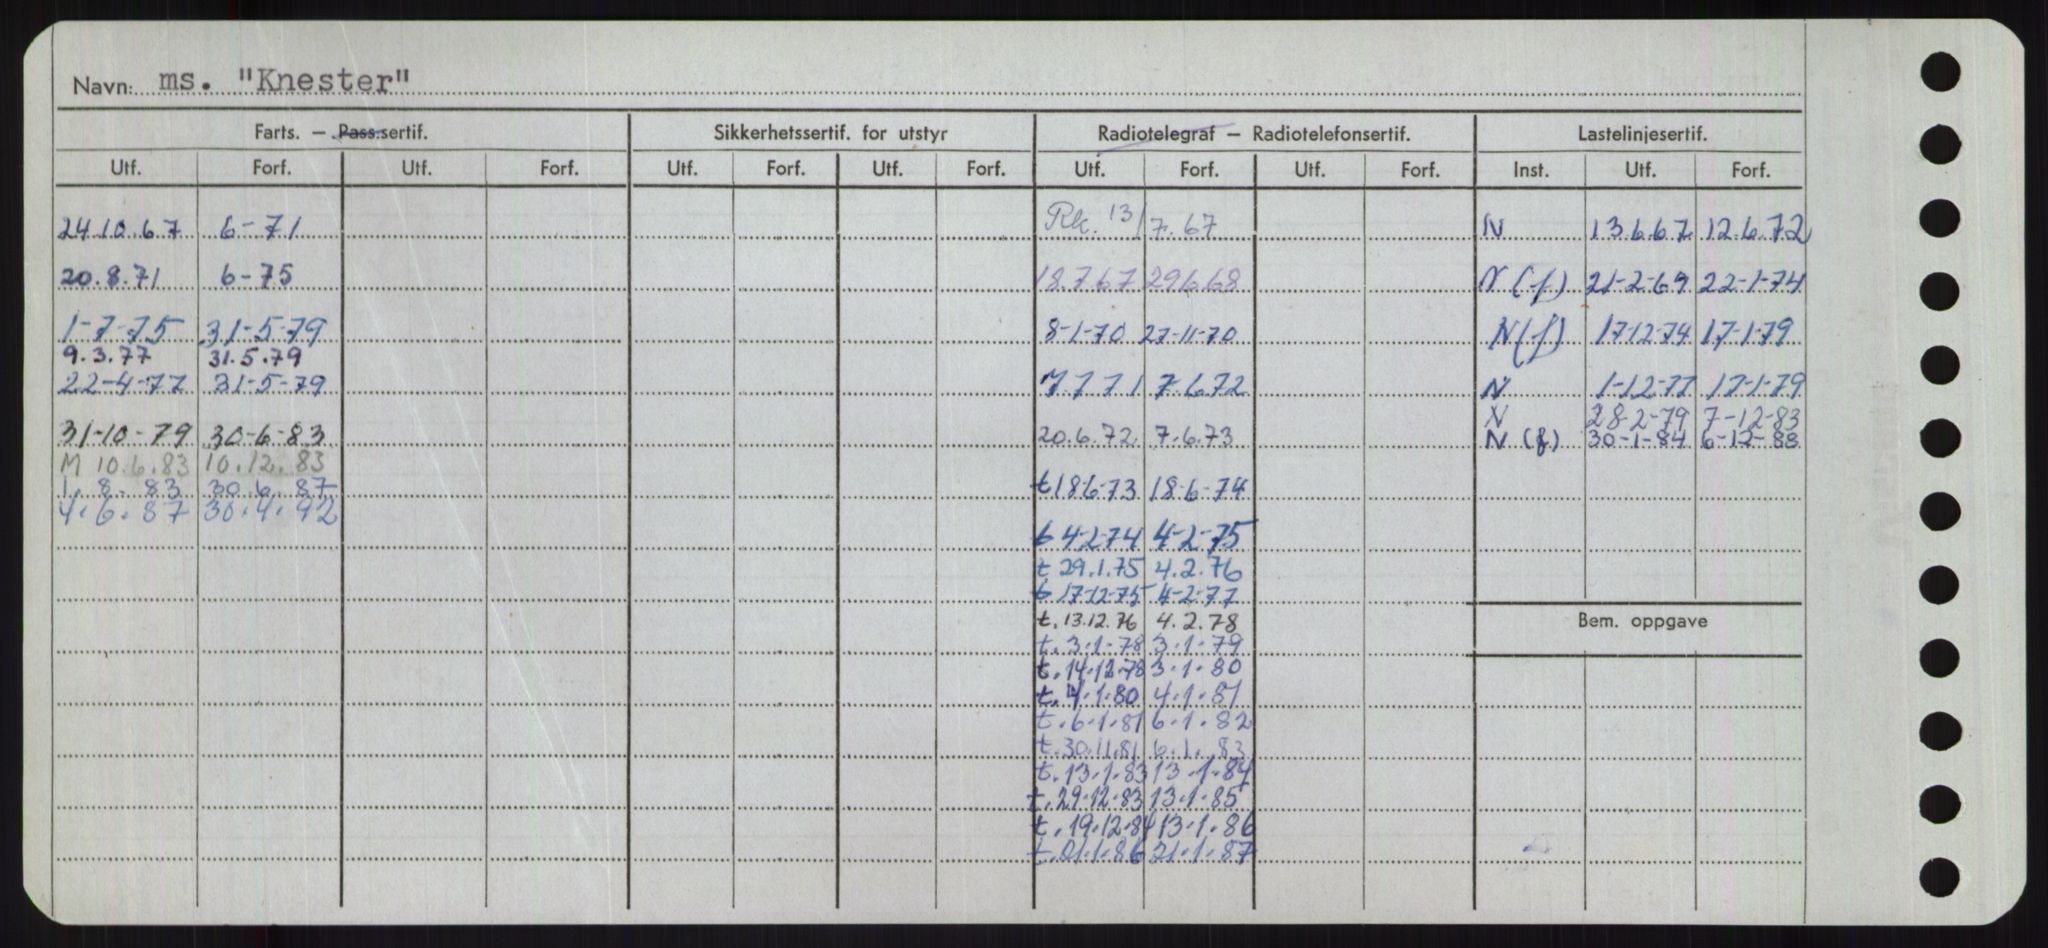 Navn: ms. "Knester"
Farts. — Pass.sertif. Sikkerhetssertif. for utstyr Radiotelegraf — Radiotelefonsertif. Lastelinjesertif.
Utf. Forf. Utf. Forf. Utf. Forf. Utf. Forf. Utf. Forf. Utf. Forf. Inst. Utf. Forf.
24.10.67 6-71 Rk. 13/7.67 N 13.6.67 12.6.72
20.8.71 6-75 18.7.67 29.6.68 N (f) 21-2-69 22-1-74
1-7-75 31-5-79 8-1-70 27-11-70 N (f) 17-12-74 17-1-79
9.3.77 31.5.79
22-4-77 31-5-79 7.7.71 7.6.72 N 1-12-77 17-1-79
N 28-2-79 7-12-83
31-10-79 30-6-83 20.6.72 7.6.73 N (f) 30-1-84 6-12-88
M 10.6.83 10.12.83
1.8.83 30.6.87 t 18-6-73 18-6-74
4.6.87 30.4.92
t 4-2-74 4-2-75
t 29.1.75 4.2.76
t 17-12-75 4-2-77
t. 13.12.76 4.2.78 Bem. oppgave
t. 3.1-78 3.1.79
t. 14.12.78 3.1.80
t. 4.1.80 4.1.81
t. 6.1.81 6.1.82
t. 30.11.81 6.1.83
t. 13.1.83 13.1.84
t. 29.12.83 13.1.85
t. 19.12.84 13.1.86
t. 21.1.86 21.1.87